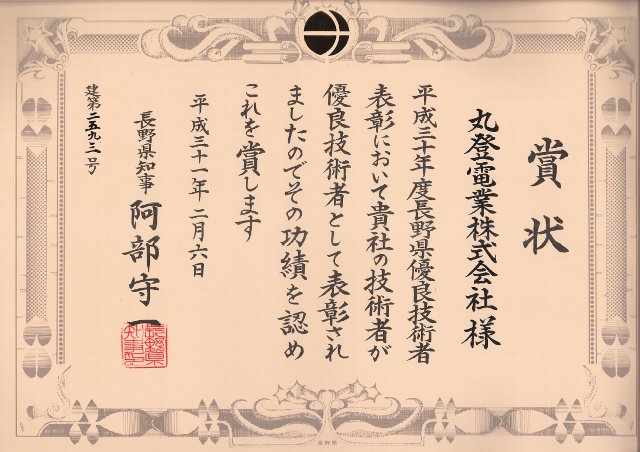 賞状
丸登電業株式会社 様
平成三十年度長野県優良技術者
表彰において貴社の技術者が
優良技術者として表彰され
ましたのでその功績を認め
これを賞します
平成三十一年二月六日
長野県知事 阿部守一
長野県知事印
建第二五九三号
長野県